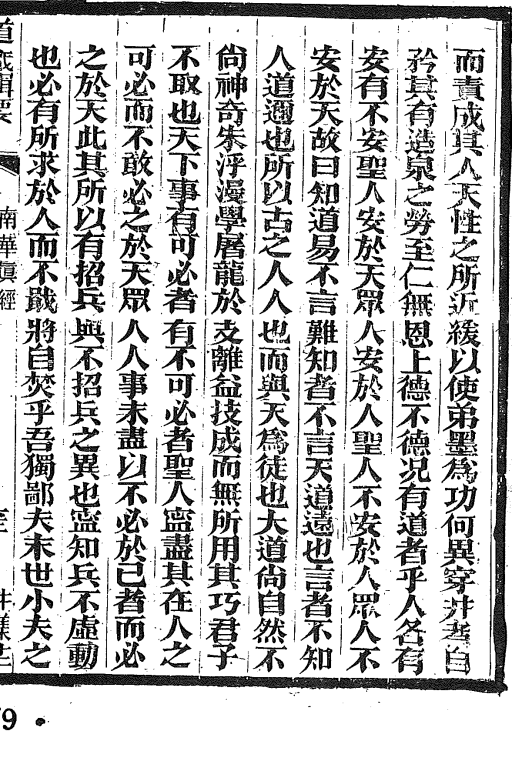 而責成其人天性之所近緩以使弟墨爲功何異穿井者自
矜其有造泉之勞至仁無恩上德不德况有道者乎人各有
安有不安聖人安於天眾人安於人聖人不安於人眾人不
安於天故曰知道易不言難知者不言天道遠也言者不知
人道邇也所以古之人人也而與天爲徒也大道尙自然不
尙神奇朱浮漫學屠龍於支離益技成而無所用其巧君子
不取也天下事有可必者有不可必者聖人寍盡其在人之
可必而不敢必之於天眾人人事未盡以不必於己者而必
之於天此其所以有招兵與不招兵之異也寍知兵不虛動
也必有所求於人而不戢將自焚乎吾獨鄙夫末世小夫之
道藏輯要
南華眞經
9